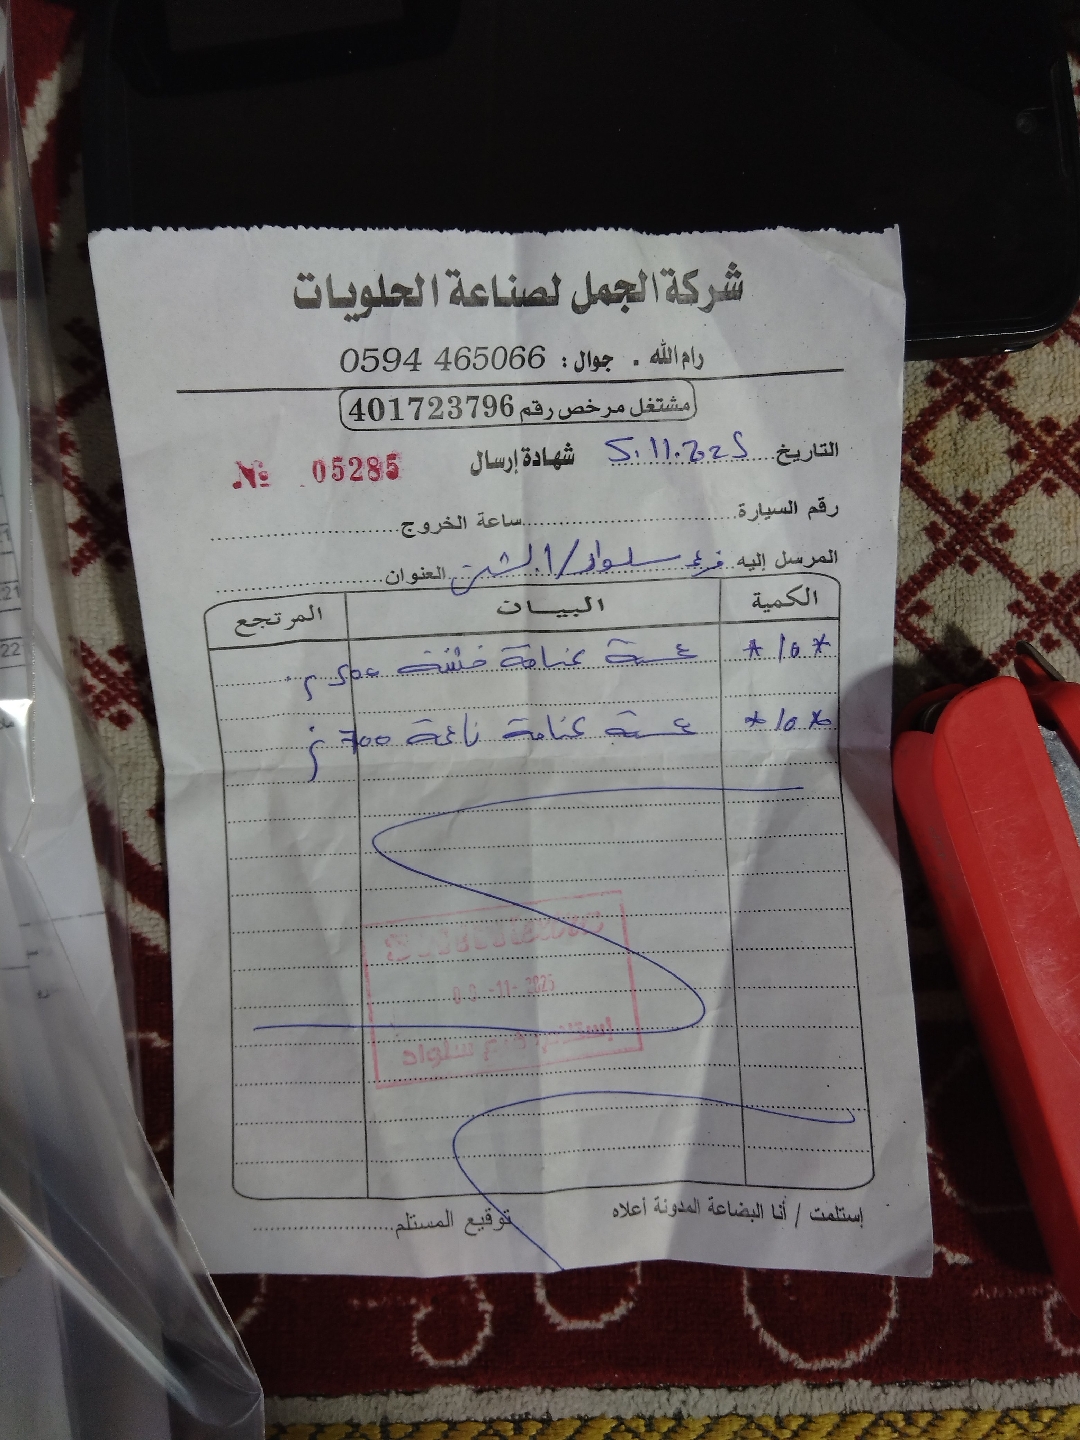 شركة الجمل لصناعة الحلويات
رام الله . جوال : 0594 465066
مشتغل مرخص رقم 401723796
التاريخ 5.11.2025 شهادة إرسال № 05285
رقم السيارة ساعة الخروج
المرسل إليه فرع سلواد / العنوان
الكمية البيات المرتجع
* 10 * علبة خشنة 500
* 10 * علبة ناعمة 700
-11- 2025
إستلمت / أنا البضاعة المدونة أعلاه توقيع المستلم